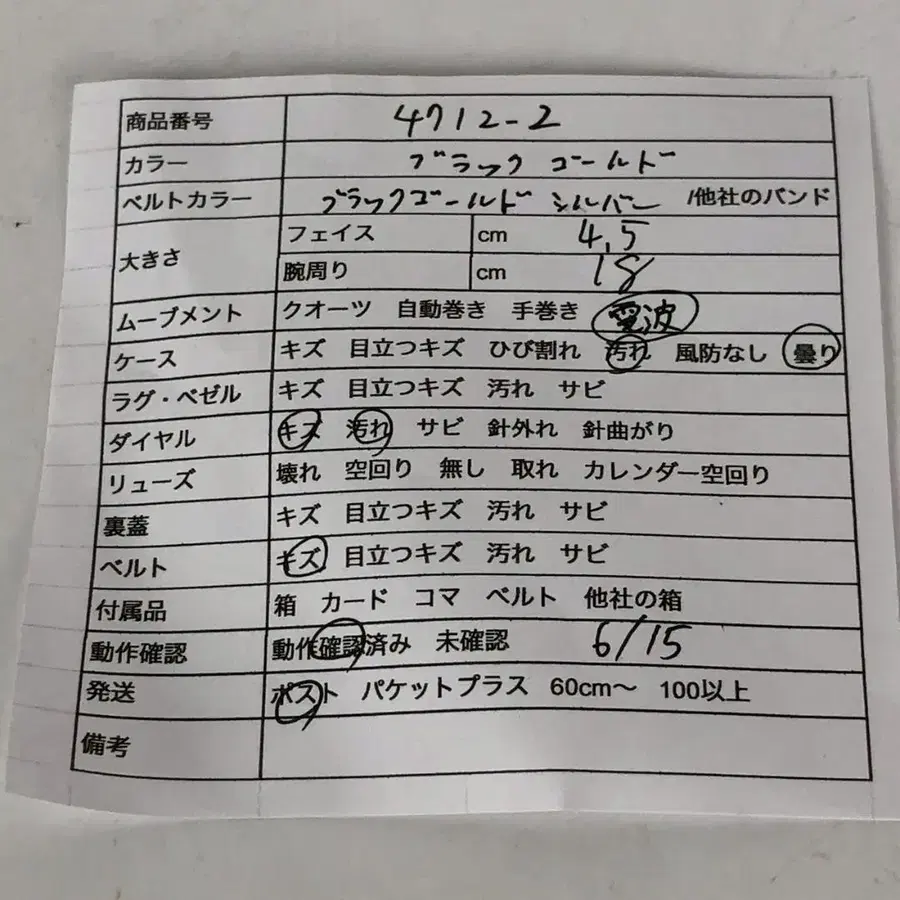 商品番号 4712-2
カラー ブラック ゴールド
ベルトカラー ブラックゴールド シルバー /他社のバンド
大きさ フェイス cm 4,5
腕周り cm 18
ムーブメント クオーツ 自動巻き 手巻き 電波
ケース キズ 目立つキズ ひび割れ 汚れ 風防なし 曇り
ラグ・ベゼル キズ 目立つキズ 汚れ サビ
ダイヤル キズ 汚れ サビ 針外れ 針曲がり
リューズ 壊れ 空回り 無し 取れ カレンダー空回り
裏蓋 キズ 目立つキズ 汚れ サビ
ベルト キズ 目立つキズ 汚れ サビ
付属品 箱 カード コマ ベルト 他社の箱
動作確認 動作確認済み 未確認 6/15
発送 ポスト パケットプラス 60cm〜 100以上
備考